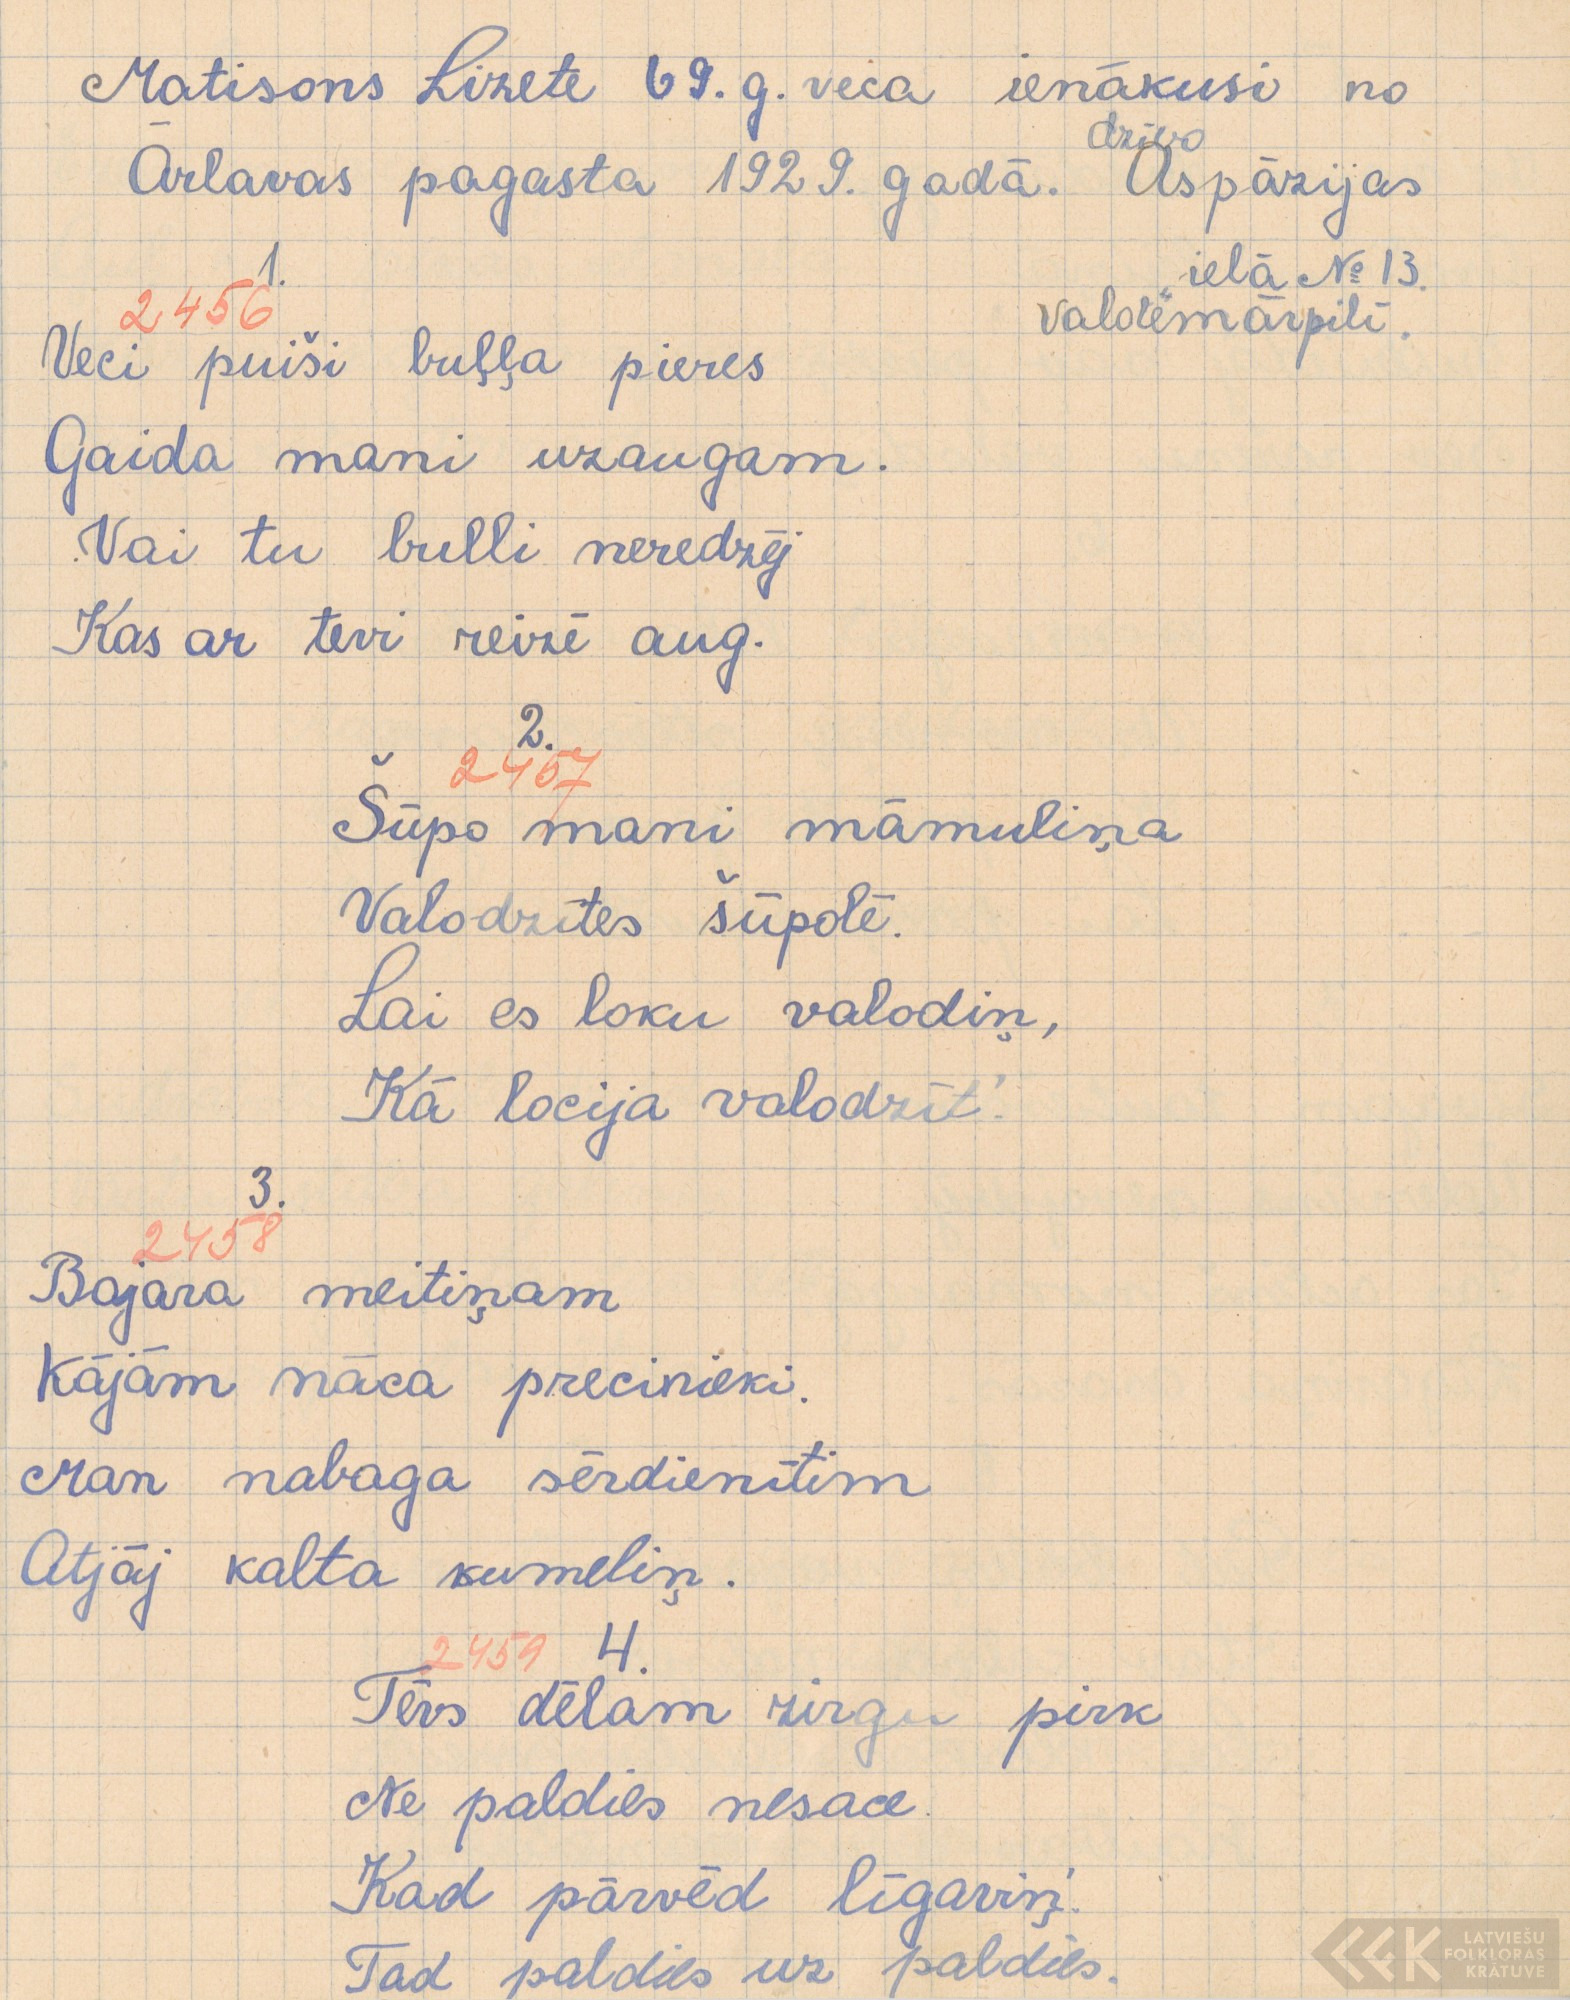 Matisons Lizete 69. g. veca ienākusi no
dzīvo
Ārlavas pagasta 1929. gadā. Aspāzijas
ielā № 13.
Valdemārpilī.
1.
2456
Veci puiši buļļa pieres
Gaida mani uzaugam.
Vai tu bulli neredzēj
Kas ar tevi reizē aug.
2.
2457
Šūpo mani māmuliņa
Valodzītes šūpolē.
Lai es loku valodiņ,
Kā locija valodzīt'.
3.
2458
Bajara meitiņam
Kājām nāca precinieki.
Man nabaga sērdienītim
Atjāj kalta kumeliņ.
2459 4.
Tēvs dēlam zirgu pirk
Ne paldies nesace.
Kad pārvēd līgaviņ'.
Tad paldies uz paldies.
LATVIEŠU
FOLKLORAS
KRĀTUVE